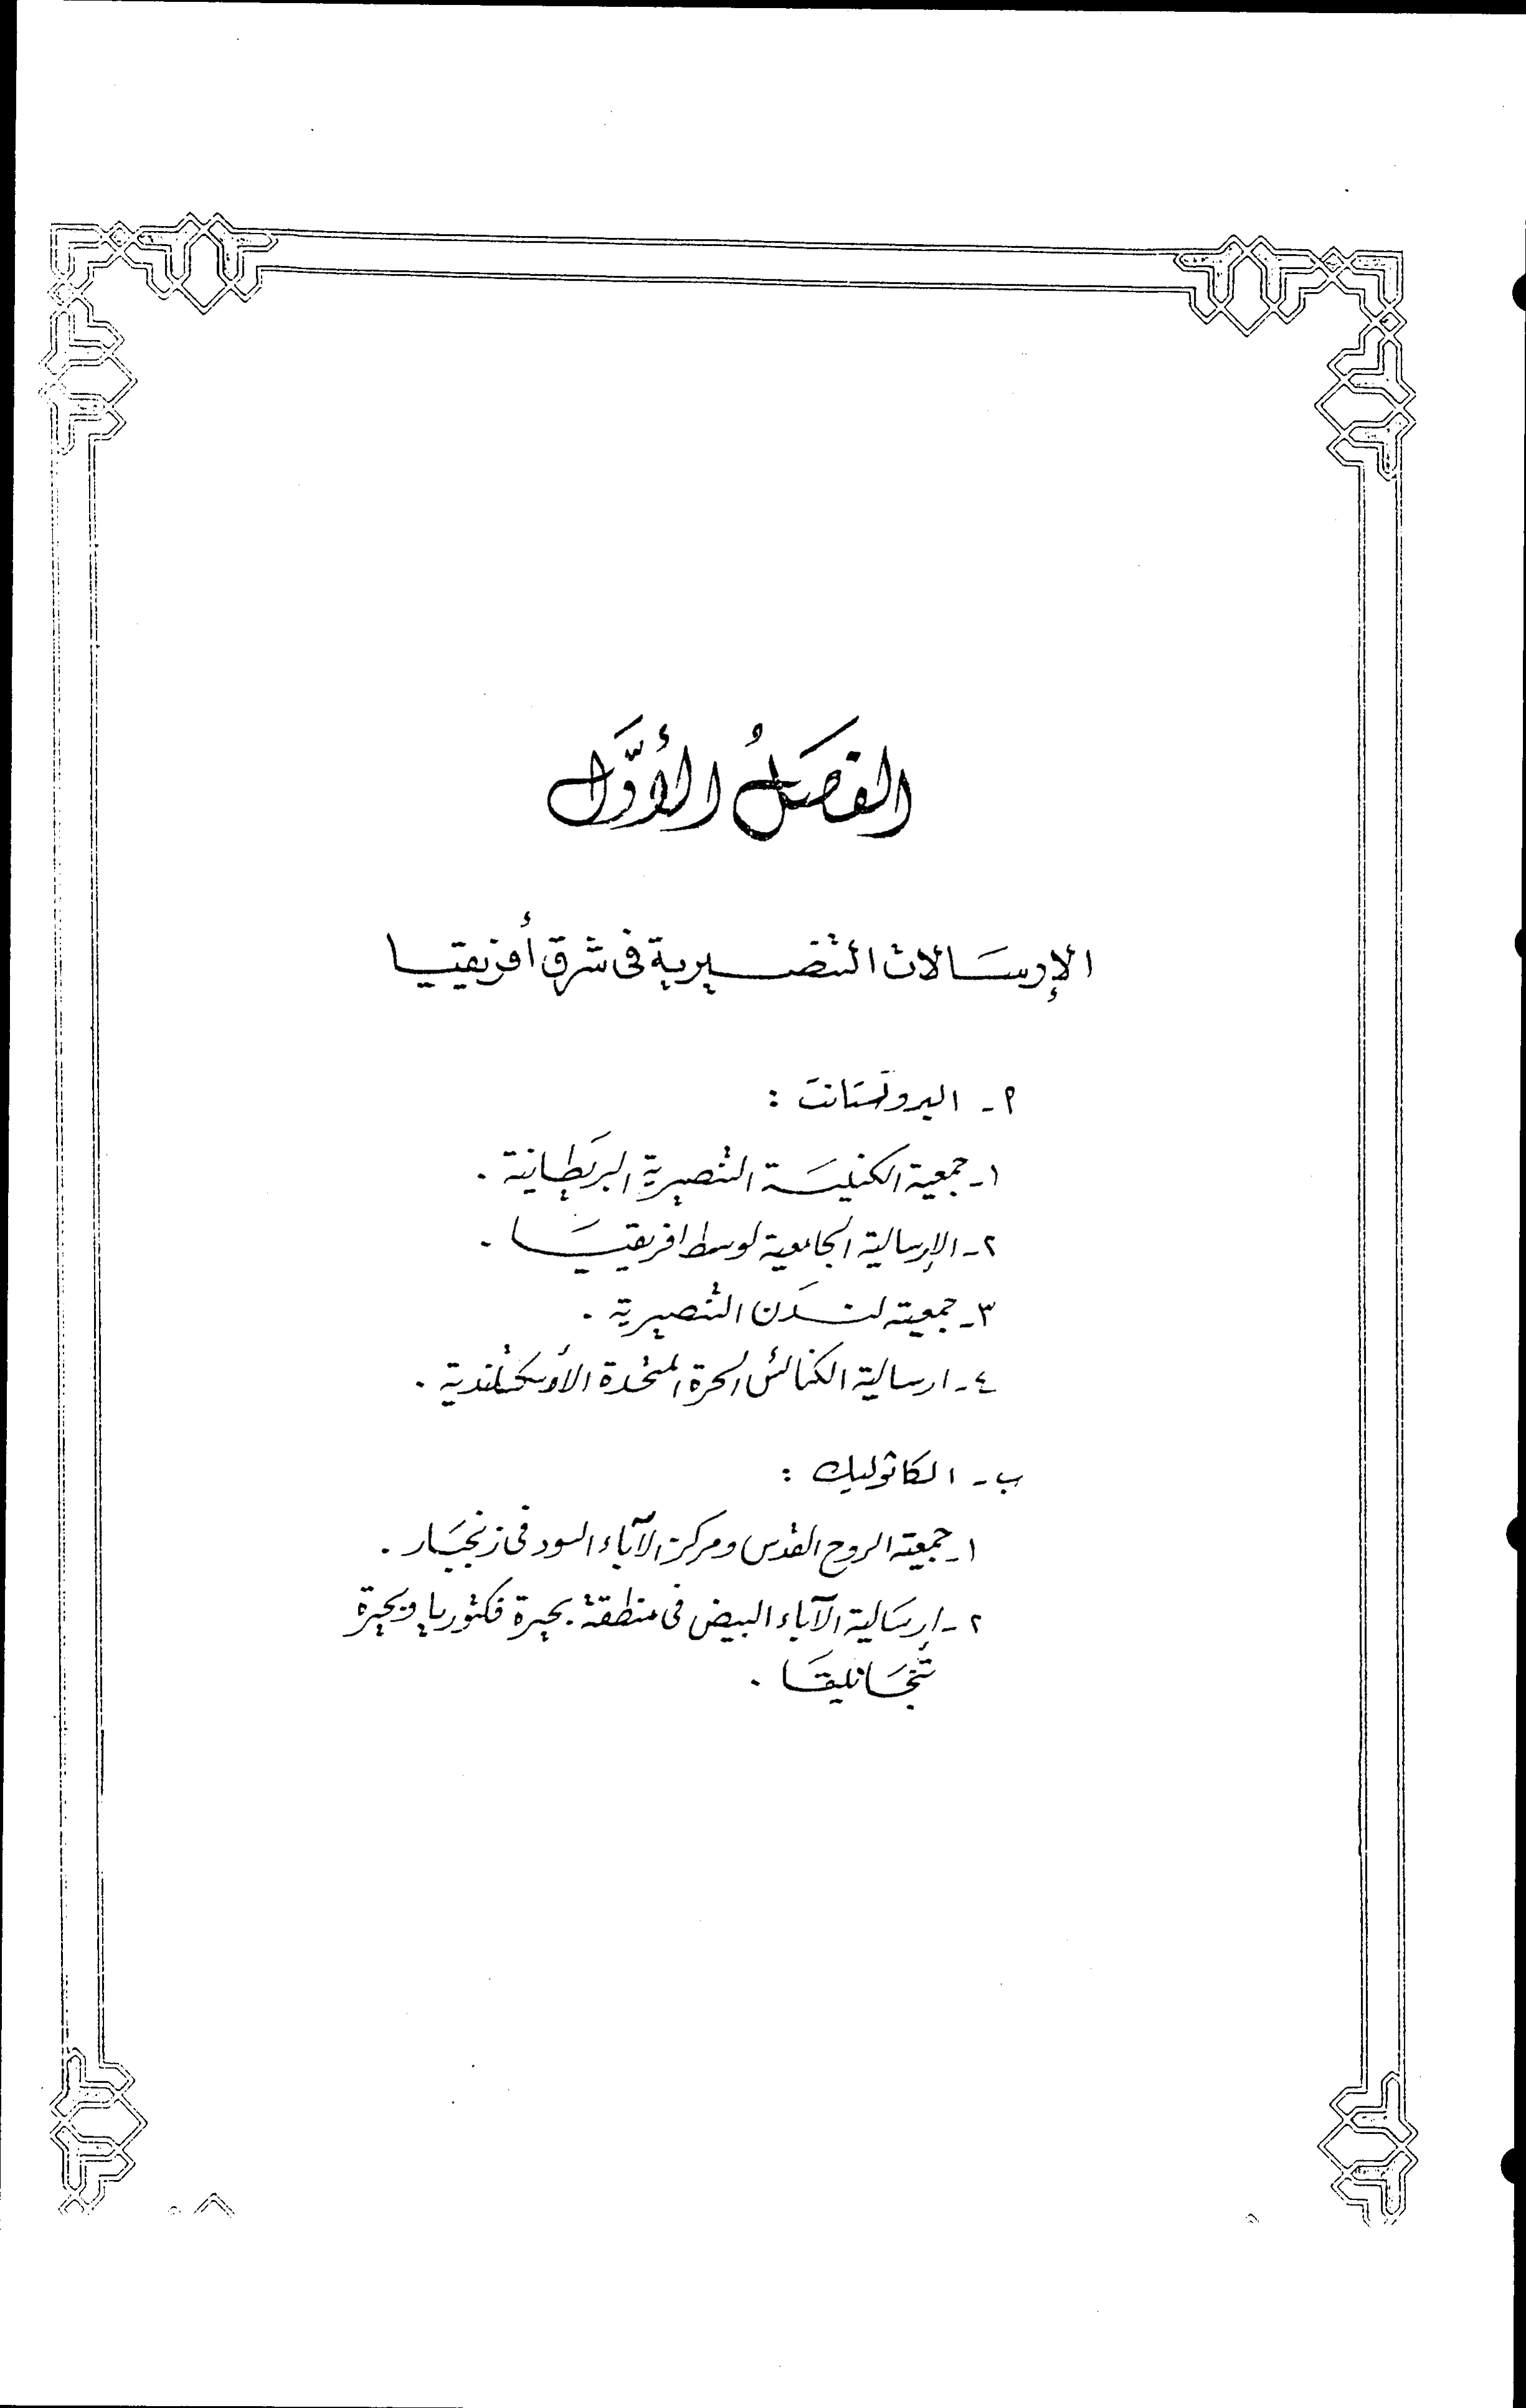 الفصَلُ الأوَّل
الإرسَالات التنصيرية فى شرق أفريقيا
٢ - البروتستانت :
١ - جمعية الكنيسَة التنصيرية البريَطانية .
٢ - الإرسالية الجامعية لوسط افريقيَا .
٣ - جمعية لندَن التنصيرية .
٤ - ارسالية الكنائس الحرة المتحدة الأسكتلندية .
ب - الكاثوليك :
١ - جمعية الروح القدس ومركز الآباء السود فى زنجبَار .
٢ - إرسَالية الآباء البيض فى منطقة بحيرة فكتوريا وبحيرة
تنجَانيقَا .